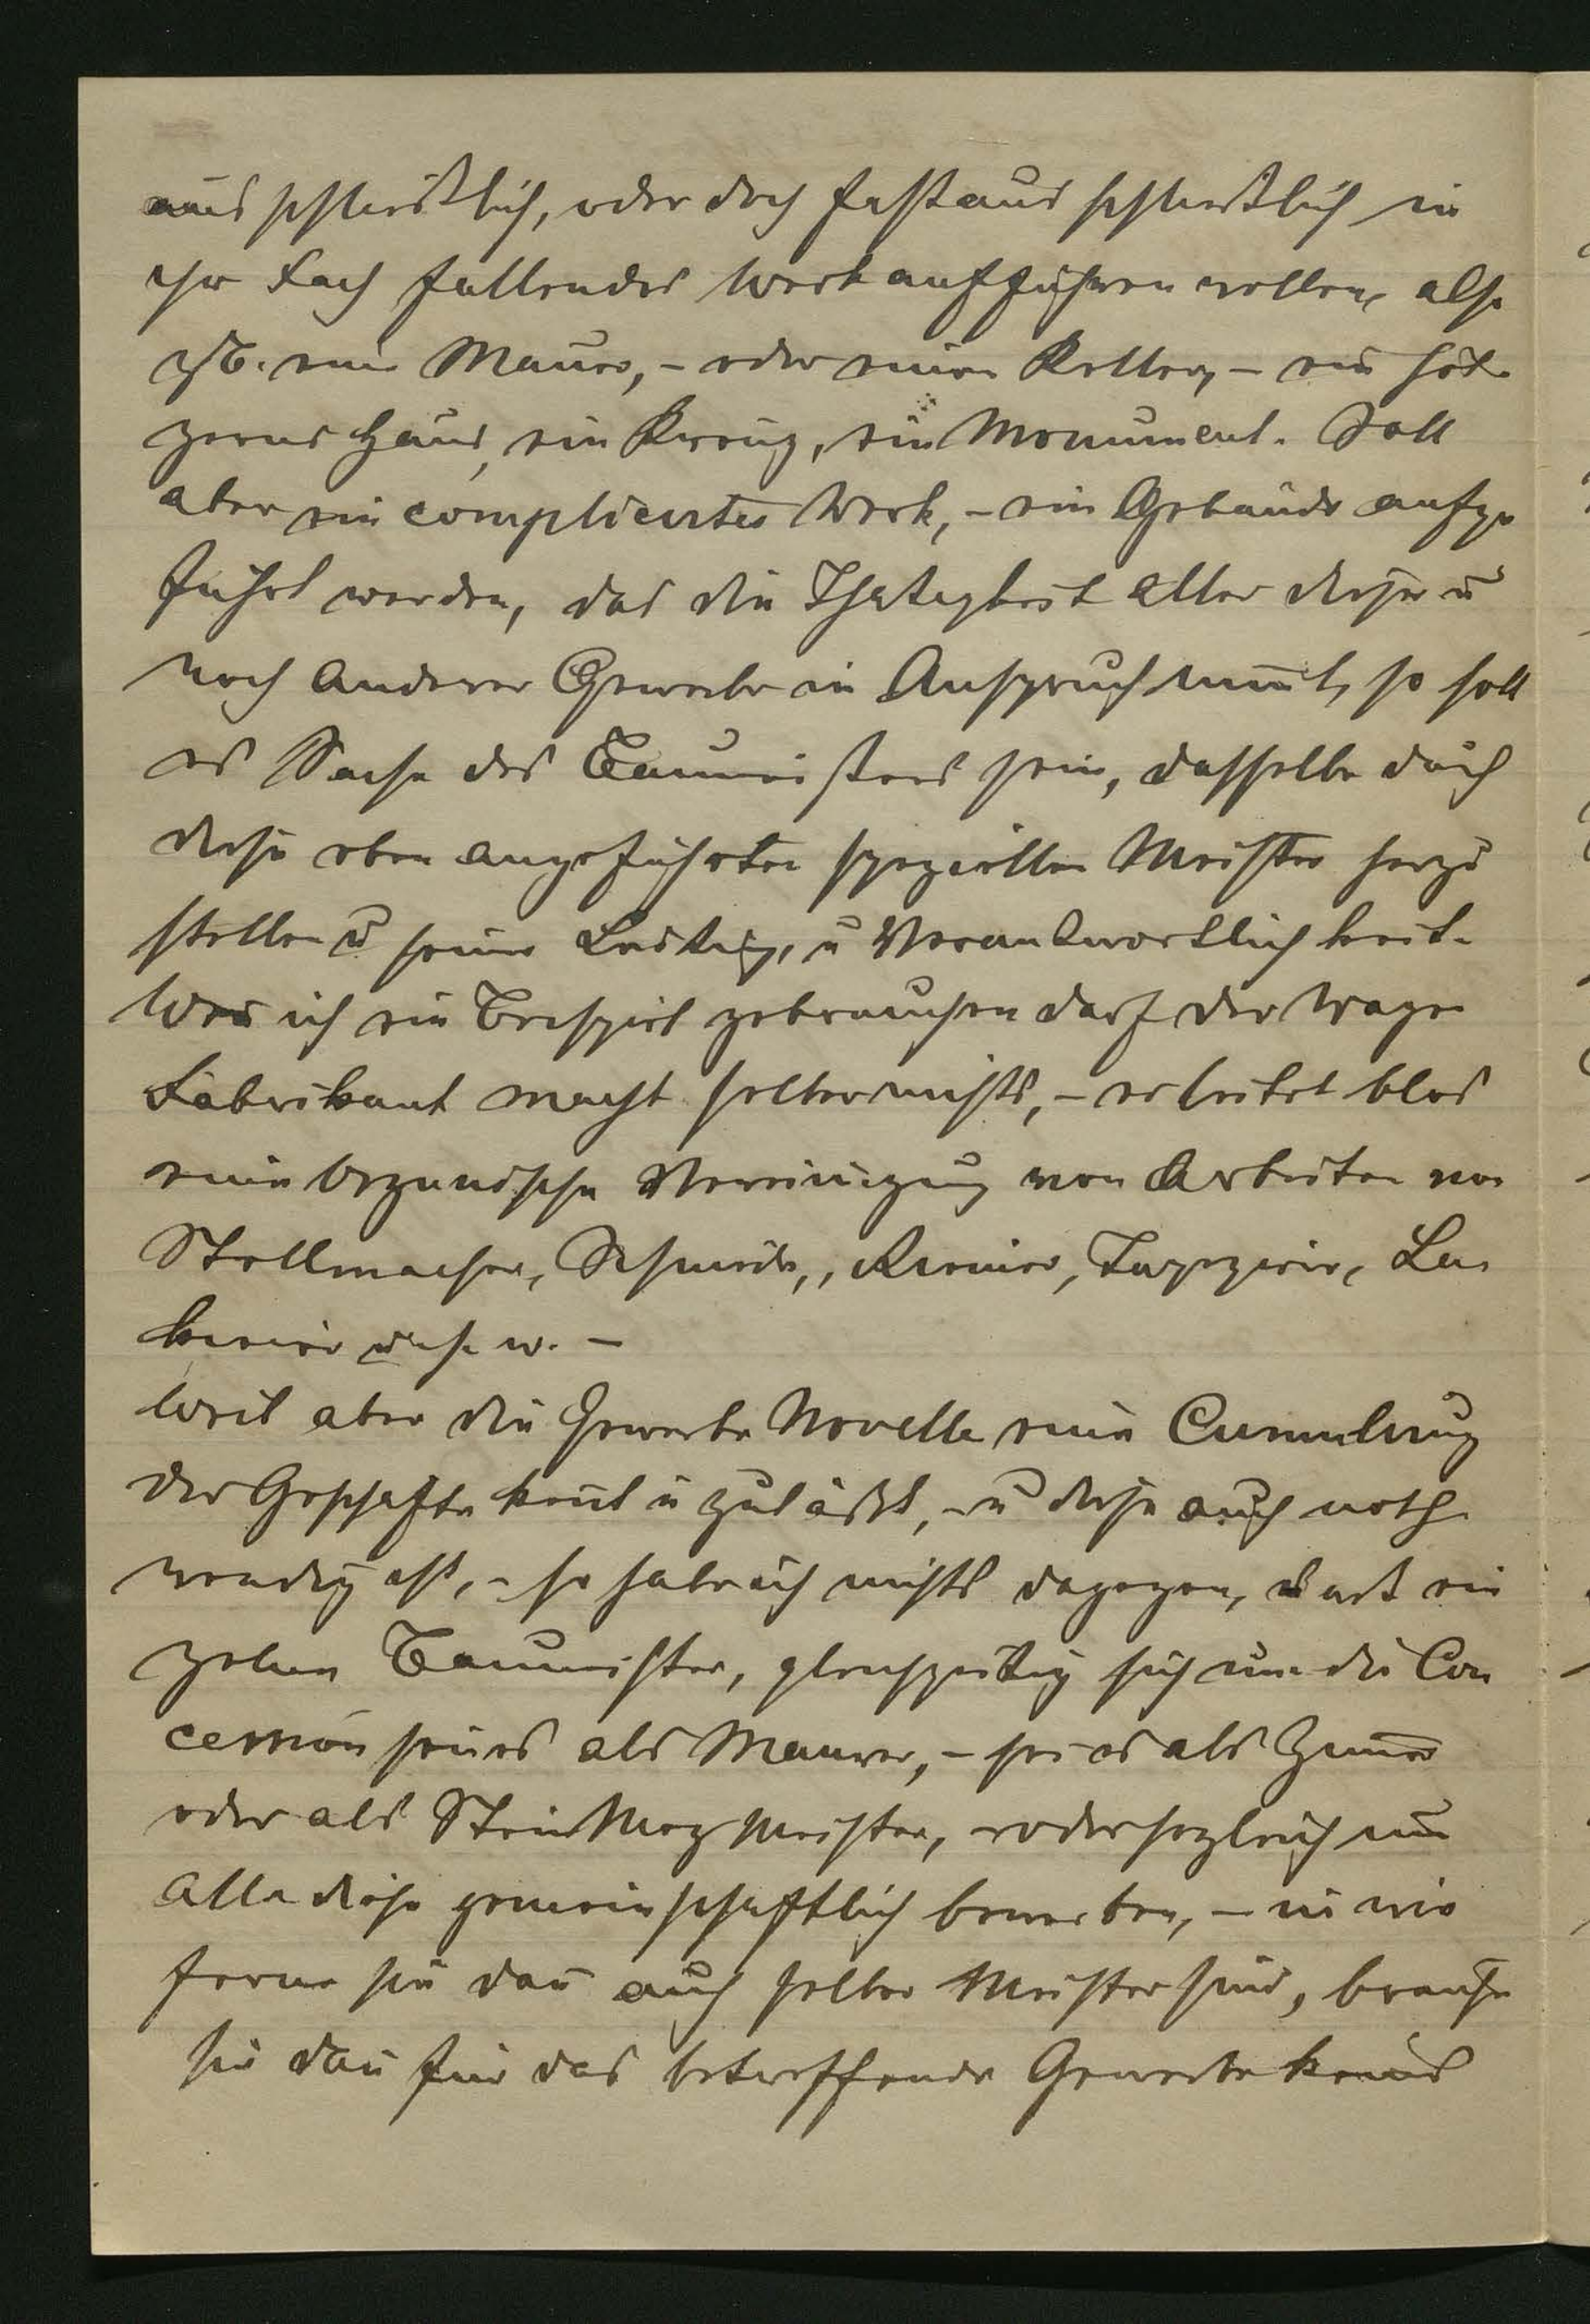 ausschließlich, oder doch fast ausschließlich in
ihr Fach fallendes Werk aufführen wollen, also
z.B. eine Mauer, – oder einen Keller, – ein höl
zernes Haus, ein Kreuz, ein Monument. Soll
aber ein complicirtes Werk, – ein Gebäude aufge
führt werden, das die Thätigkeit aller dieser u
noch anderer Gewerbe in Anspruch nimmt, so soll
es Sache des Baumeisters sein, dasselbe durch
diese oben angeführten speziellen Meister herzu
stellen u seine Leitung, u Verantwortlichkeit.
Wen ich ein Beispiel gebrauchen darf der Wagen
Fabrikant macht selber nichts, – er leitet blos
eine organische Vereinigung von Arbeiten von
Stellmacher, Schmiede, Riemer, Tapezirer, La
kierer u. s. w. –
Weil aber die Gewerbe Novelle eine Cumulirung
der Geschäfte kent u zuläßt, – u diese auch noth
wendig ist, – so habe ich nichts dagegen, daß ein
zelne Baumeister, gleichzeitig sich um die Con
cession sei es als Maurer, – sei es als Zimer
oder als Steinmez Meister, – oder sogleich um
alle diese gemeinschaftlich bewerben, – in wie
ferne sie dan auch selber Meister sind, brauchen
sie dan für das betreffende Gewerbe keines